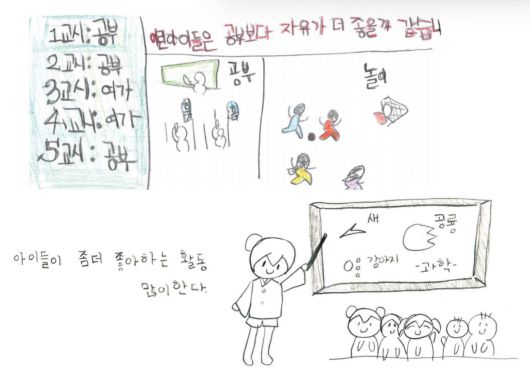 1교시: 공부
2교시: 공부
3교시: 여가
4교시: 여가
5교시: 공부
아이들은 공부보다 자유가 더 좋을
공부
놀이
아이들이 좀더 좋아하는 활동
많이한다.
새
공룡
강아지
-과학-